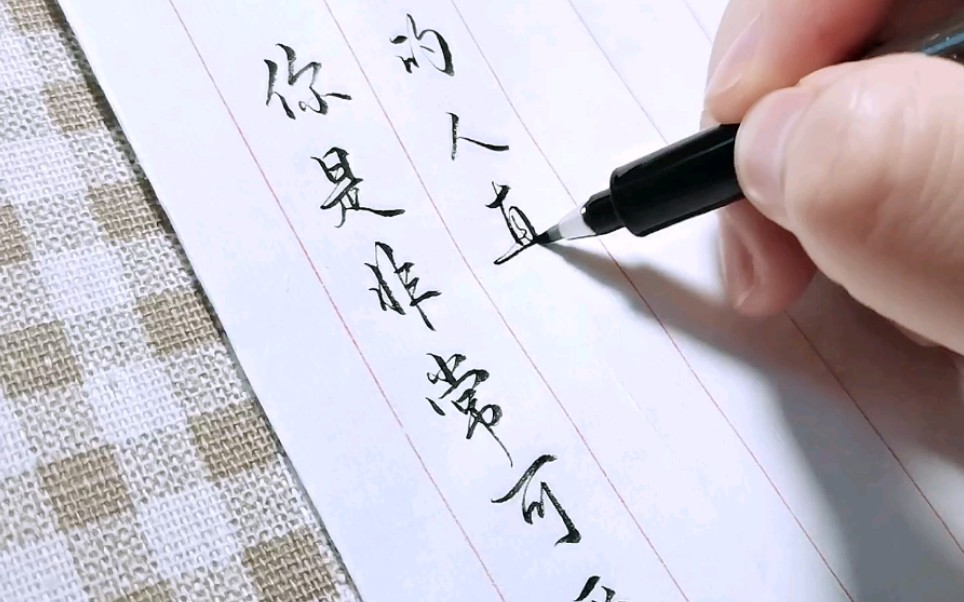 你是非常可
的人